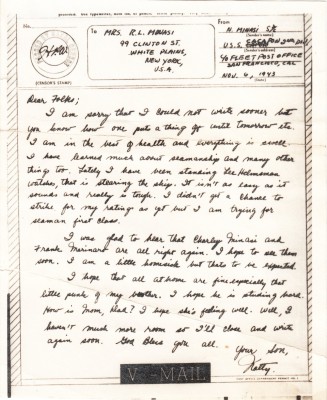 To
MRS. R.L. MINASI
99 CLINTON ST.
WHITE PLAINS,
NEW YORK,
U.S.A.
From
N. MINASI S/2
U.S.S.
℅ FLEET POST OFFICE
SAN FRANCISCO, CAL
NOV. 4, 1943
(CENSOR'S STAMP)
Dear Folks;
I am sorry that I could not write sooner but
you know how one puts a thing off until tomorrow etc.
I am in the best of health and everything is swell.
I have learned much about seamanship and many other
things too. Lately I have been standing Lee Helmsman
watches, that is steering the ship. It isn't as easy as it
sounds and really is tough. I didn't get a chance to
strike for my rating as yet but I am trying for
seaman first class.
I was glad to hear that Charley Minasi and
Frank Marinaro are all right again. I hope to see them
soon. I am a little homesick but thats to be expected.
I hope that all at home are fine, especially that
little punk of my brother. I hope he is studing hard.
How is Mom, Dad? I hope she's feeling well. Well, I
haven't much more room so I'll close and write
again soon. God Bless you all.
Your Son,
Natty.
V-MAIL